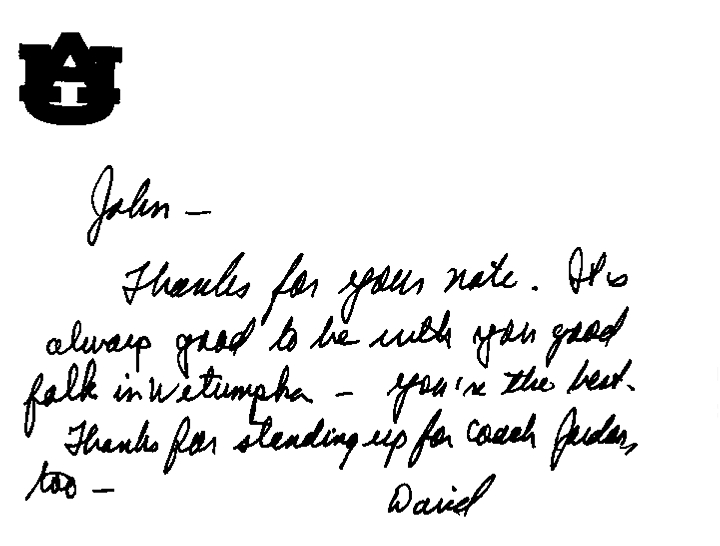 AU
John –
Thanks for your note. It's
always good to be with you good
folk in Wetumpka – you're the best.
Thanks for standing up for Coach Jordan,
too –
David